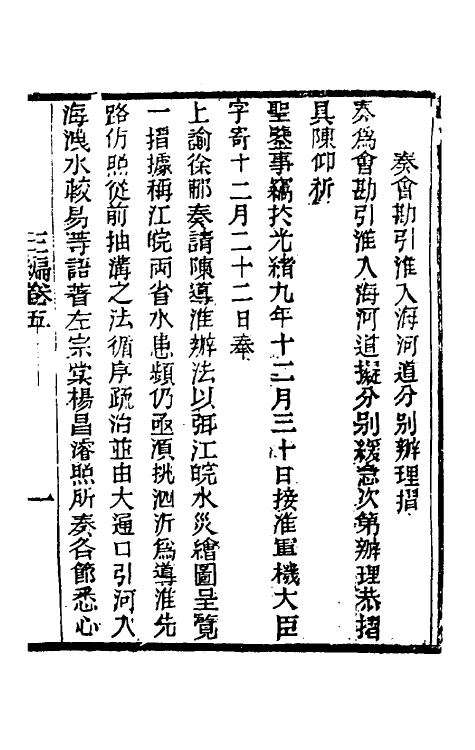 奏會勘引淮入海河道分別辦理摺
奏爲會勘引淮入海河道擬分别緩急次第辦理恭摺
具陳仰祈
聖鑒事竊於光緒九年十二月三十日接淮軍機大臣
字寄十二月二十二日奉
上諭徐郙奏請陳導淮辦法以弭江皖水災繪圖呈覽
一摺據稱江皖兩省水患頻仍亟須挑泗沂爲導淮先
路仿照從前抽溝之法循序疏治並由大通口引河入
海洩水較易等語著左宗棠楊昌濬照所奏各節悉心
三編卷五
一